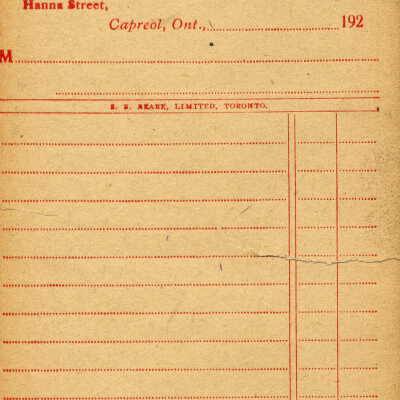 Hanna Street,
Capreol, Ont., 192
M
LIMITED, TORONTO.